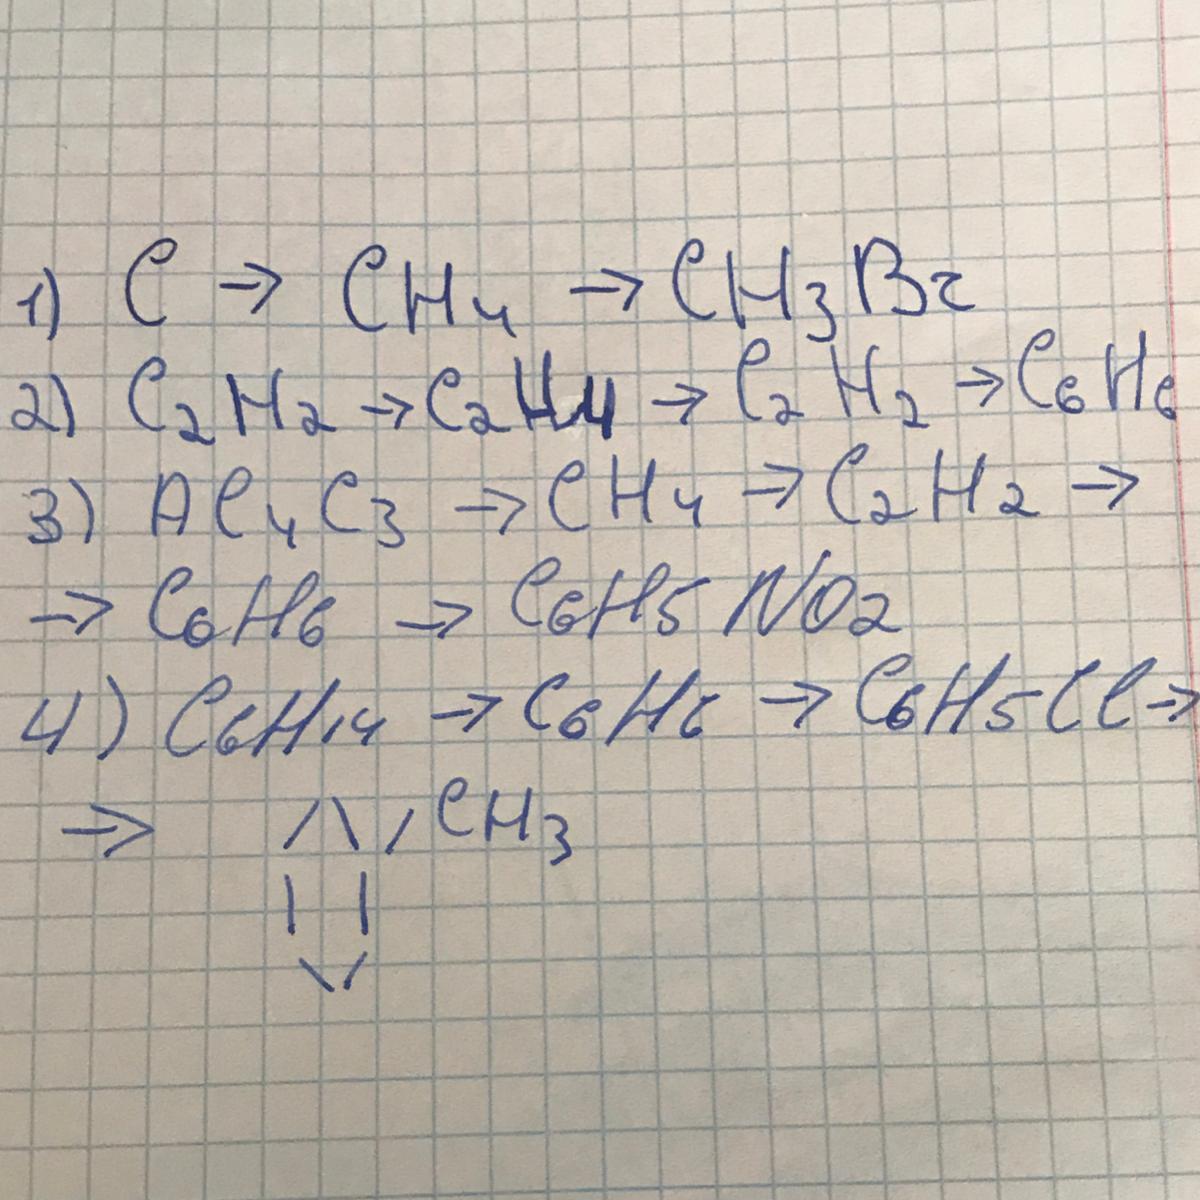 1) C → CH4 → CH3Br
2) C2H2 → C2H4 → C2H2 → C6H6
3) Al4C3 → CH4 → C2H2 →
→ C6H6 → C6H5NO2
4) C6H14 → C6H6 → C6H5Cl →
→ CH3